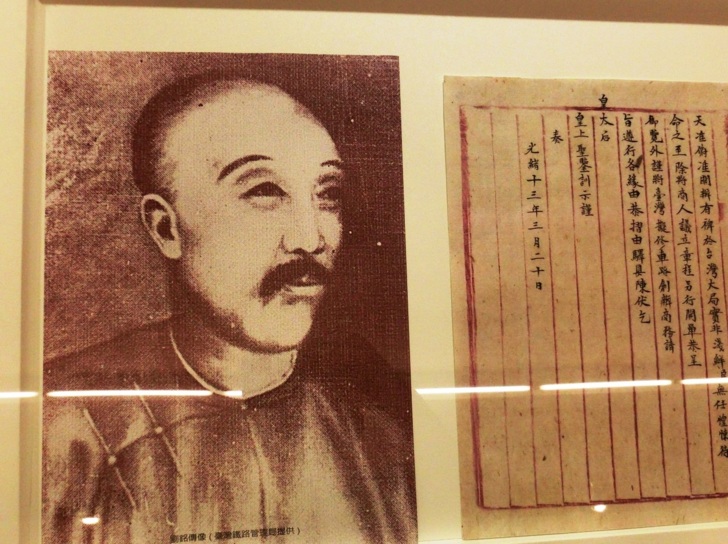 開辦有裨於台灣大局實非
命之至除將商人議立章程另行開單恭呈
御覽外謹將臺灣擬修車路創辦商務請
旨遵行各緣由恭摺由驛具陳伏乞
皇太后
皇上聖鑒訓示謹
奏
光緒十三年三月二十日
劉銘傳像（臺灣鐵路管理局提供）